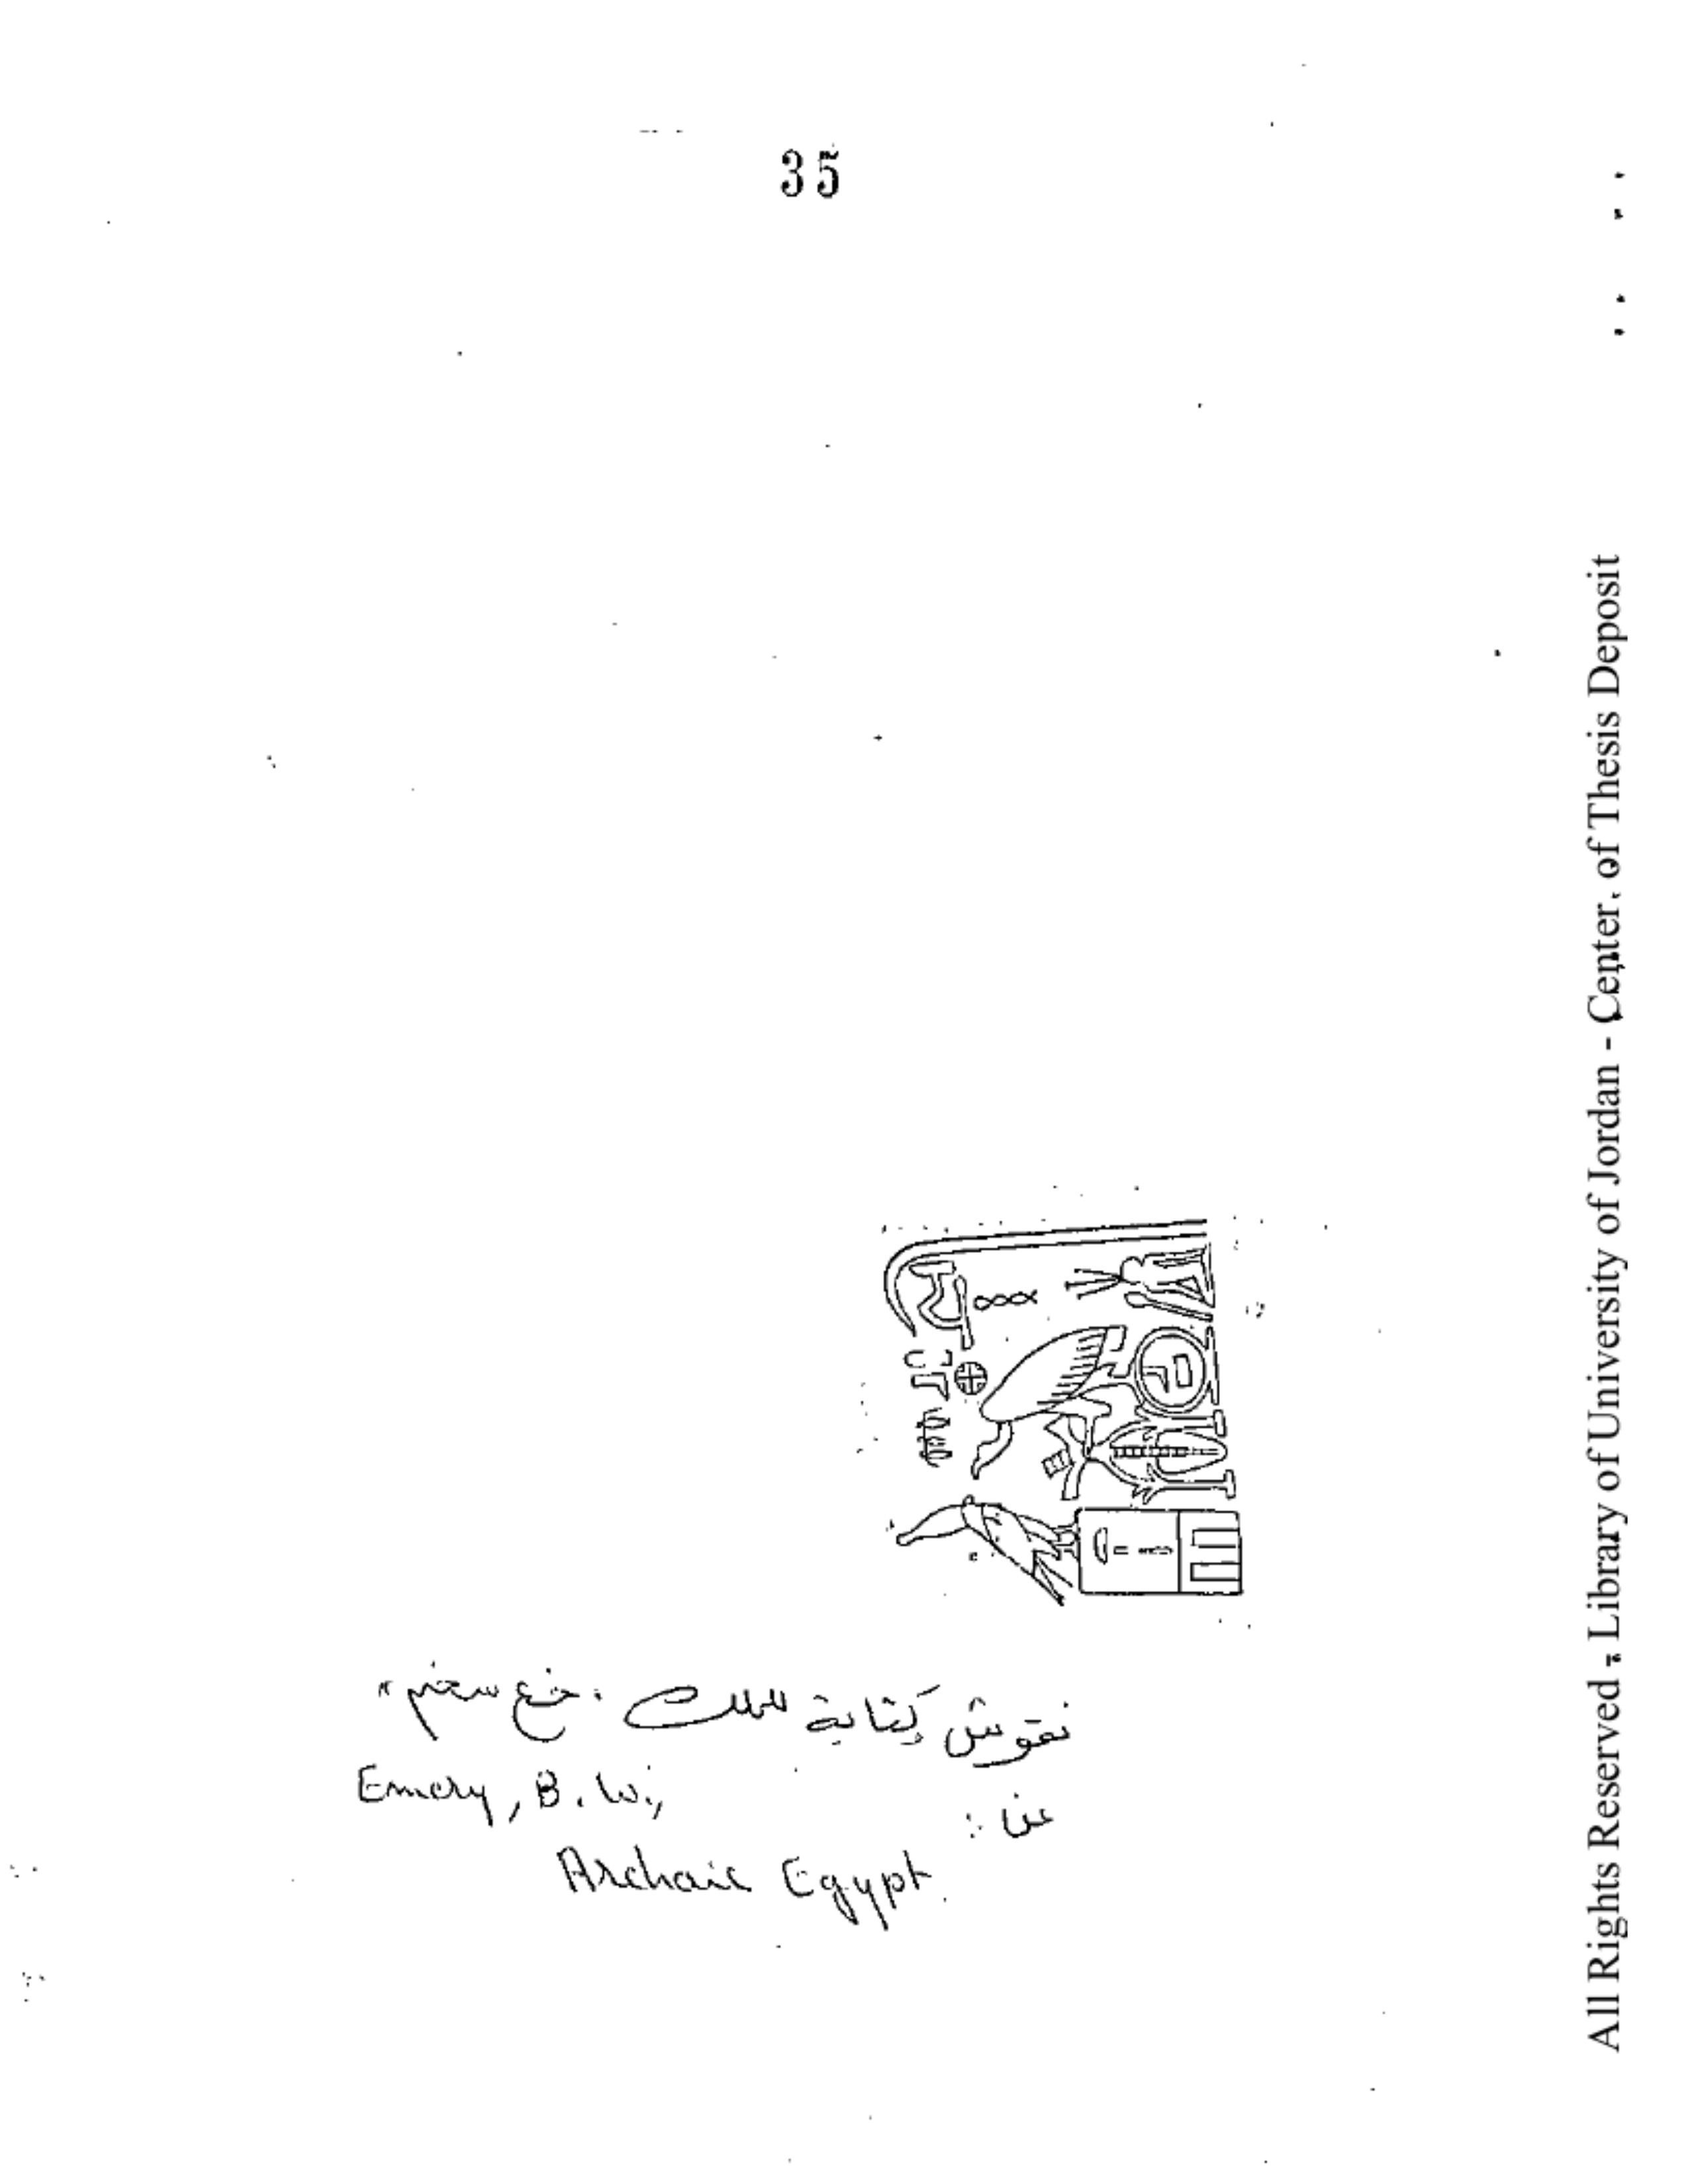 35
نقوش كتابة للملك "خع سخم"
عن :
Emery, B. W.,
Archaic Egypt.
All Rights Reserved - Library of University of Jordan - Center of Thesis Deposit